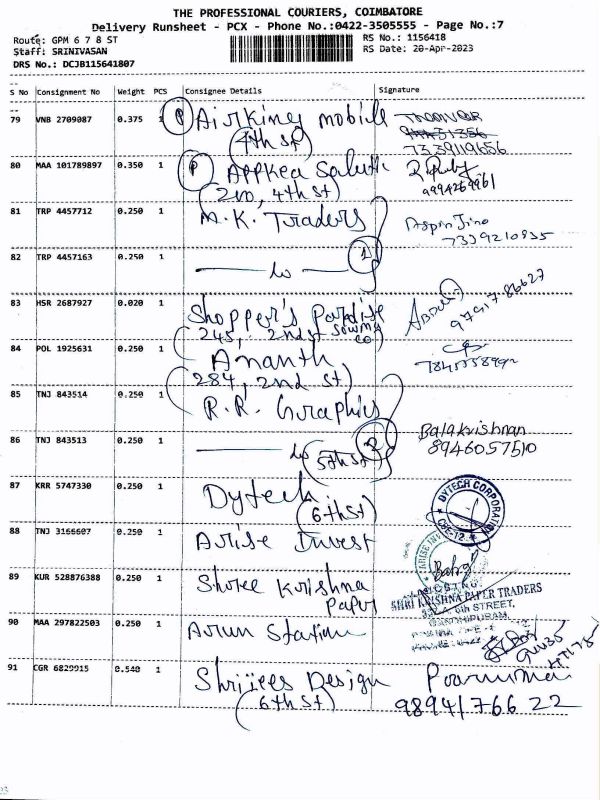 THE PROFESSIONAL COURIERS, COIMBATORE
Delivery Runsheet - PCX - Phone No.:0422-3505555 - Page No.:7
Route: GPM 6 7 8 ST
RS No.: 1156418
Staff: SRINIVASAN
RS Date: 20-Apr-2023
DRS No.: DCJB115641807
S No Consignment No Weight PCS Consignee Details Signature
79 VNB 2709087 0.375 1 P Airking mobile
(4th st) 7339119656
80 MAA 101789897 0.350 1 P Appkea
(2nd, 4th st) 9994269961
81 TRP 4457712 0.250 1 M.K. Traders
7339210935
82 TRP 4457163 0.250 1 do 1
83 HSR 2687927 0.020 1 Shopper's Paradise
(245, 2nd st 97917 86627
84 POL 1925631 0.250 1 Ananth
(284, 2nd st)
85 TNJ 843514 0.250 1 R.R. Graphics
86 TNJ 843513 0.250 1 do 2 Balakrishnan
(5th st) 8946057510
87 KRR 5747330 0.250 1 Dytech
(6th st) DYTECH CORPORATION
CBE-12
88 TNJ 3166607 0.250 1 Arise Invest
89 KUR 528876388 0.250 1 Shree Krishna
Paper
SHRI KRISHNA PAPER TRADERS
6th STREET,
GANDHIPURAM
90 MAA 297822503 0.250 1 Arun Station
91 CGR 6829915 0.540 1 Shrijees Design Poornima
(6th st) 98941766 22
23